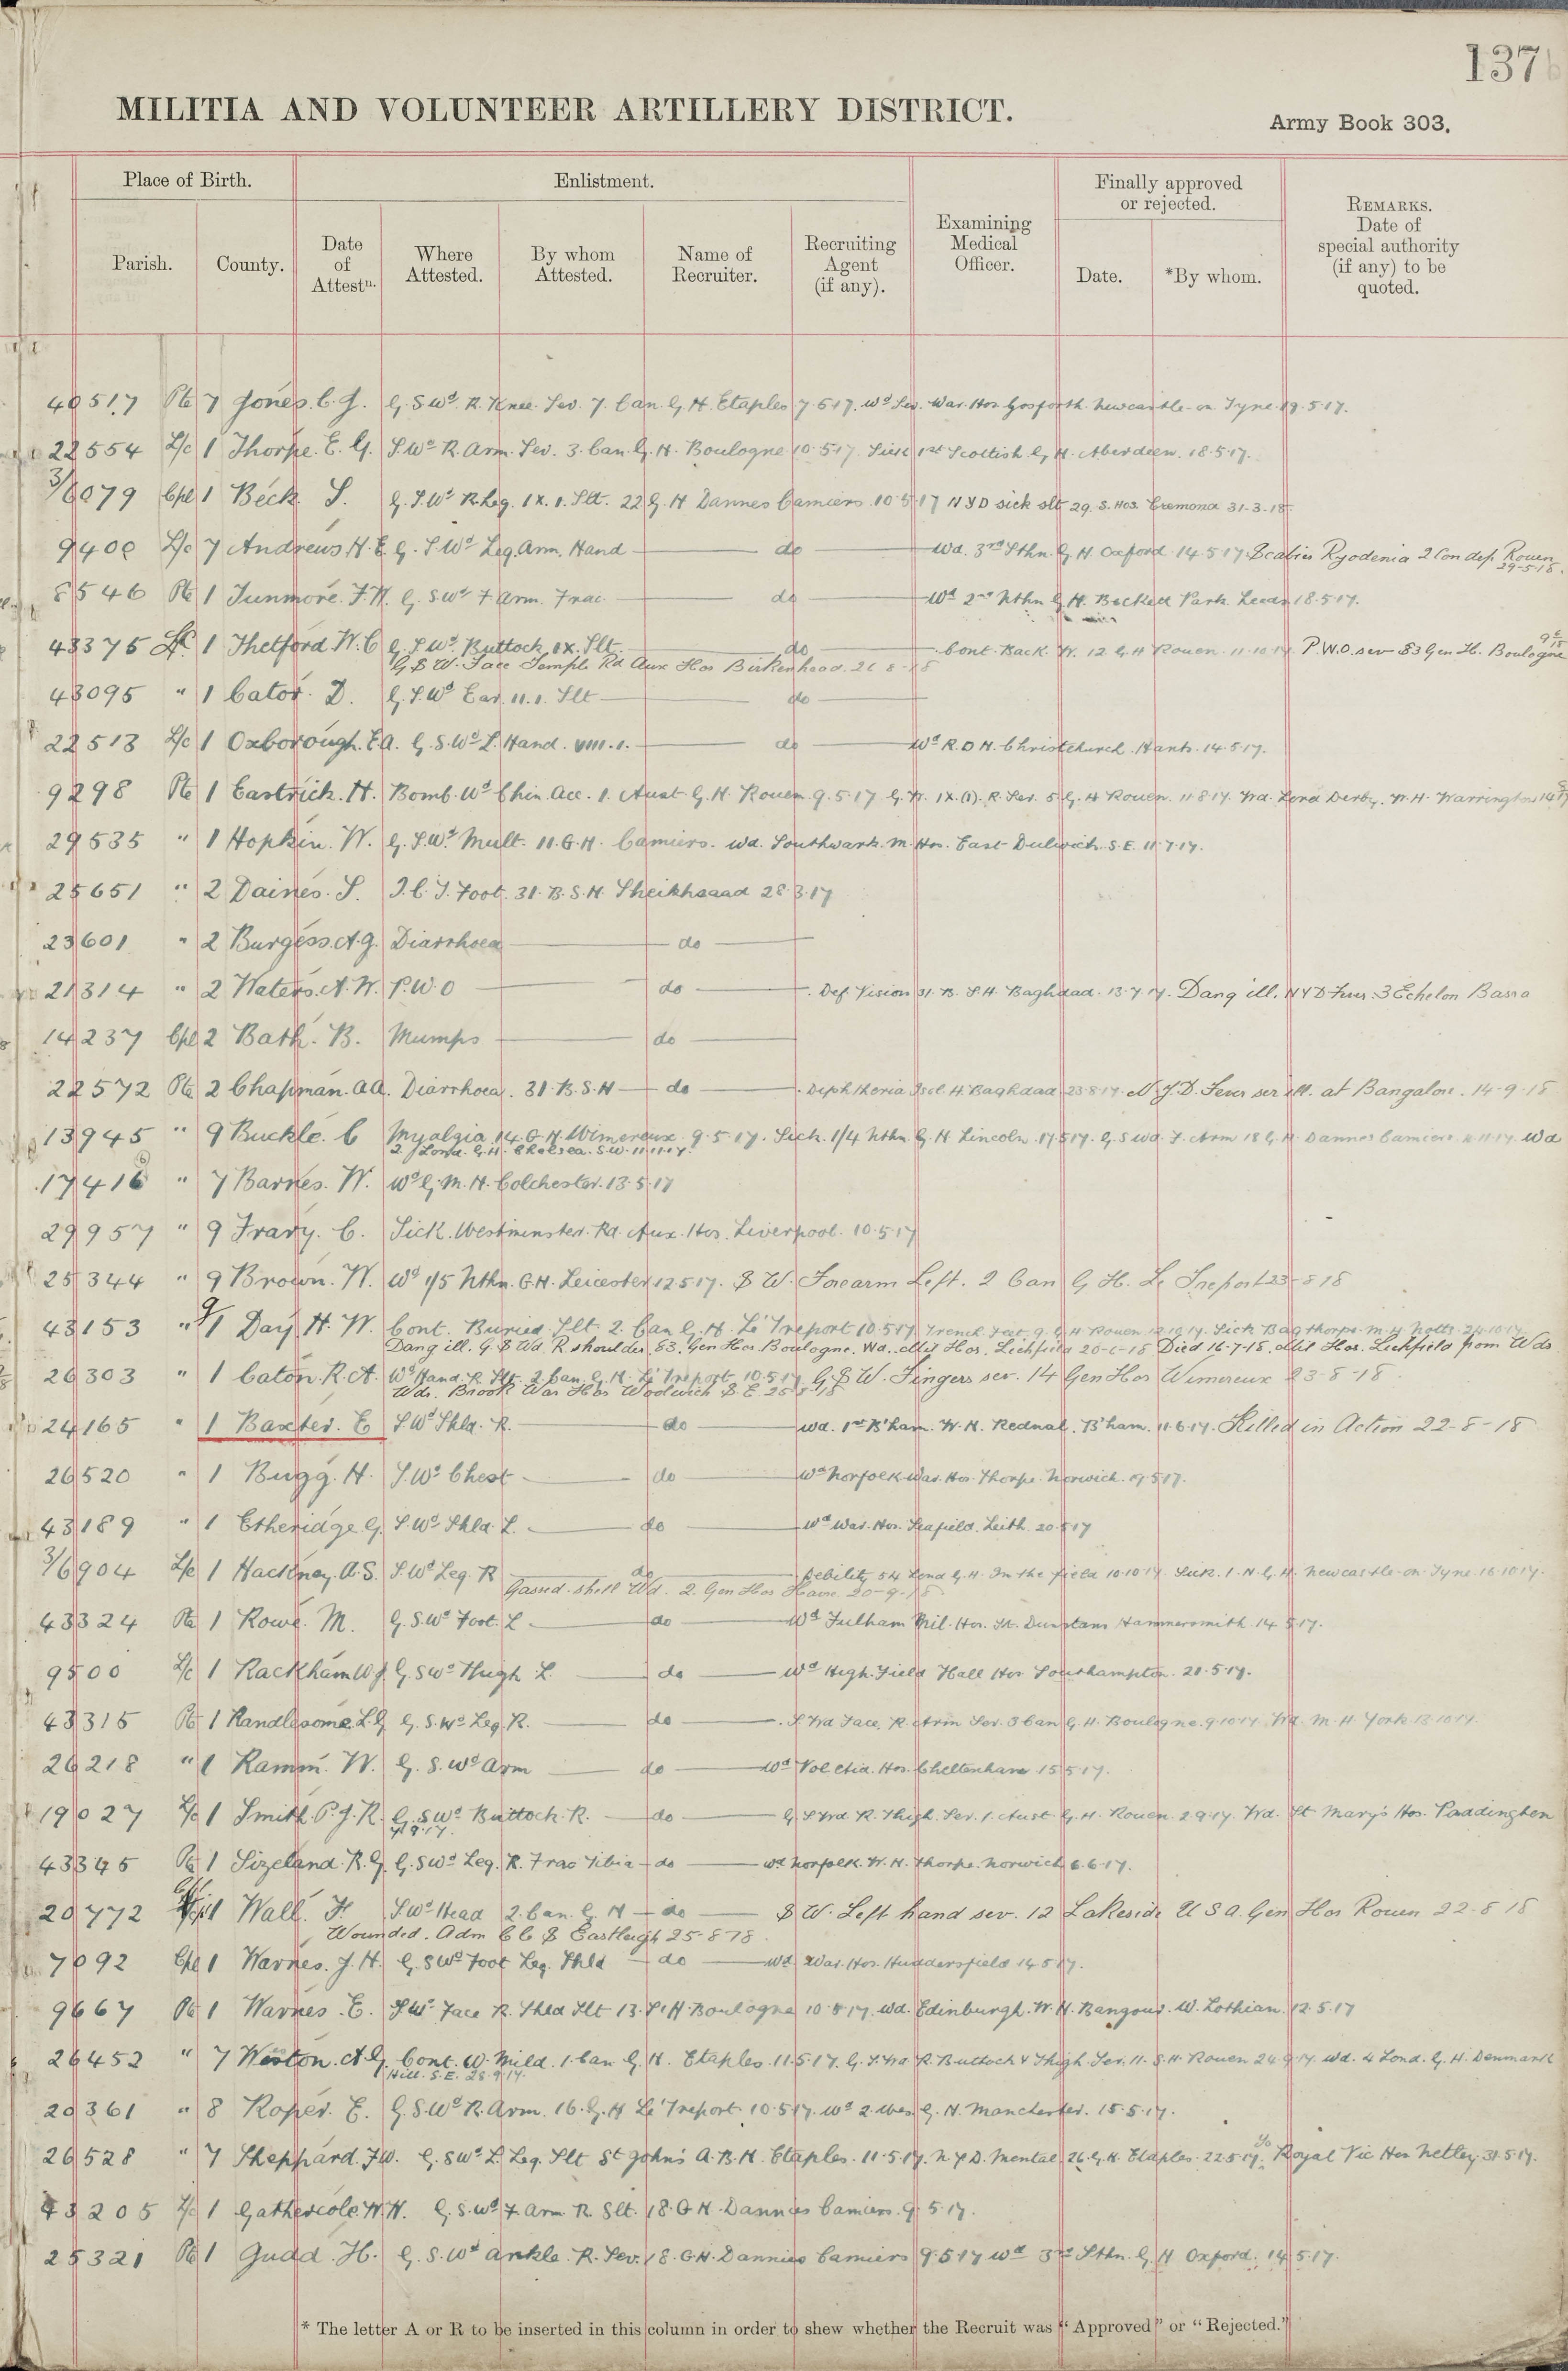 137
MILITIA AND VOLUNTEER ARTILLERY DISTRICT.
Army Book 303.
Place of Birth. Enlistment. Finally approved or rejected.
Parish. County. Date of Attestn. Where Attested. By whom Attested. Name of Recruiter. Recruiting Agent (if any). Examining Medical Officer. Date. *By whom. REMARKS. Date of special authority (if any) to be quoted.
40517 Pte 7 Jones. C. J. G. S Wd. R. Knee. Sev. 7. Can. G. H. Etaples 7.5.17. Wd Sev. War. Hos. Gosforth. Newcastle-on-Tyne. 19.5.17.
22554 L/c 1 Thorpe. E. G. S. Wd R. Arm. Sev. 3. Can. G. H. Boulogne 10.5.17. Sick 1st Scottish G. H. Aberdeen. 18.5.17.
3/6079 Cpl 1 Beck. S. G. S. Wd R. Leg. 1X. 1. Slt. 22 G. H Dannes Camiers. 10.5.17 NYD sick slt 29. S. Hos. Cremona 31-3-18
9400 L/c 7 Andrews. H. E. G. S. Wd Leg. Arm. Hand do Wd. 3rd Sthn. G. H. Oxford. 14.5.17. Scabies Pyodenia 2 Con dep. Rouen 29-5-18.
8546 Pte 1 Tunmore. F. W. G. S Wd F Arm. Frac. do Wd 2nd Nthn G. H. Beckett Park. Leeds 18.5.17.
43375 L/c 1 Thetford. W. C G. S Wd. Buttock 1X. Slt. do Cont. Back. W. 12. G. H Rouen. 11.10.17. P.W.O. sev 83 Gen H. Boulogne
G S W. Face Temple Rd Aux Hos Birkenhead. 26-8-18
43095 " 1 Cator. D. G. S. Wd Ear. 11. 1. Slt do
22513 L/c 1 Oxborough. E. A. G. S. Wd L. Hand. VIII. 1. do Wd R. D H. Christchurch. Hants. 14.5.17.
9298 Pte 1 Eastrick. H. Bomb. Wd Chin. Acc. 1. Aust G. H. Rouen. 9.5.17 G. W. 1X. (1). R. Sev. 5 G. H Rouen. 11.8.17. Wd. Lord Derby. W. H. Warrington
29535 " 1 Hopkin. W. G. S. Wd Mult. 11. G. H. Camiers. Wd. Southwark. M. Hos. East Dulwich. S. E. 11.7.17.
25651 " 2 Daines. S. I. C. T. Foot. 31. B. S. H. Sheikhsaad 28.3.17
23601 " 2 Burgess. A. G. Diarrhoea do
21314 " 2 Waters. A. W. P. W. O do Def. Vision 31. B. S. H. Baghdad. 13.7.17. Dang ill. NYD Fever. 3 Echelon Basra
14237 Cpl 2 Bath. B. Mumps do
22572 Pte 2 Chapman. A. A. Diarrhoea. 31. B. S. H do Diphtheria Isol. H. Baghdad. 23.8.17. N.Y.D. Fever ser ill. at Bangalore. 14-9-18
13945 " 9 Buckle. C Myalgia. 14. G. H. Wimereux. 9.5.17. Sick. 1/4 Nthn. G. H. Lincoln. 17.5.17. G. S Wd. F. Arm 18 G. H. Dannes Camiers. Wd
2. Lond. G. H. Chelsea. S. W. 11.11.17.
17416 " 7 Barnes. W. Wd G. M. H. Colchester. 13.5.17
29957 " 9 Frary. C. Sick. Westminster. Rd. Aux. Hos. Liverpool. 10.5.17
25344 " 9 Brown. W. Wd 1/5 Nthn. G. H. Leicester 12.5.17. S W. Forearm Left. 2 Can G H. Le Treport 23-8-18
43153 " 9/1 Day. H. W. Cont. Buried Slt. 2. Can. G. H. Le Treport 10.5.17 Trench Feet. 9. G. H Rouen Sick Bagthorpe. M. H. Notts.
Dang ill. G S Wd R shoulder 53. Gen Hos Boulogne. Wd. Mil Hos. Lichfield 20-6-18 Died 16-7-18. Mil Hos. Lichfield from Wds
26303 " 1 Caton. R. A. Wd Hand. R. Slt. 2. Can. G. H. Le Treport. 10.5.17 G S W. Fingers sev. 14 Gen Hos Wimereux 23-8-18.
Wds. Brook War Hos Woolwich S. E. 25-8-18
24165 " 1 Baxter. E S Wd Shld. R. do Wd. 1st B'ham. W. H. Rednal. B'ham. 11.6.17. Killed in Action 22-8-18
26520 " 1 Bugg. H. S. Wd Chest do Wd Norfolk War. Hos. Thorpe. Norwich. 19.5.17.
43189 " 1 Etheridge. G. S. Wd Shld. L. do Wd War. Hos. Seafield. Leith. 20.5.17
3/6904 L/c 1 Hackney. A. S. S. Wd Leg. R do Debility 54 Lond G. H. In the field 10.10.17. Sick. 1. N. G. H. Newcastle-on-Tyne. 16.10.17.
Gassed. shell Wd. 2. Gen Hos Havre 20-9-18
43324 Pte 1 Rowe. M. G. S. Wd Foot. L do Wd Fulham Mil. Hos. St. Dunstans Hammersmith. 14.5.17.
9500 L/c 1 Rackham W. J. G. S Wd Thigh L. do Wd High Field Hall Hos Southampton. 20.5.17.
43315 Pte 1 Randlesome. L. G G. S. Wd Leg. R. do S. Wd Face. R. Arm Sev. 3 Can G. H. Boulogne. 9.10.17 Wd. M. H York. 13.10.17.
26218 " 1 Ramm. W. G. S. Wd Arm do Wd Vol Aid. Hos. Cheltenham 15.5.17.
19027 L/c 1 Smith. P. J. R. G. S. Wd Buttock. R. do G. S Wd. R. Thigh. Sev. 1. Aust G. H. Rouen. 2.9.17. Wd. St Mary's Hos. Paddington
7.9.17.
43345 Pte 1 Sizeland. R. G. G. S Wd Leg. R. Frac Tibia do Wd Norfolk. W. H. Thorpe. Norwich 6.6.17.
20772 1 Wall. F. S. Wd Head 2. Can. G. H do S W. Left hand sev. 12 Lakeside U S A. Gen Hos Rouen 22-8-18
Wounded. Adm C C S Eastleigh 25-8-18.
7092 Cpl 1 Warnes. J. H. G. S Wd Foot Leg. Shld do Wd War. Hos. Huddersfield 14.5.17.
9667 Pte 1 Warnes. E. S Wd Face R. Shld Slt 13. S. H. Boulogne 10.5.17. Wd. Edinburgh. W. H. Bangour. W. Lothian. 12.5.17
26452 " 7 Weston. A. G. Cont. W. Mild. 1. Can G. H. Etaples. 11.5.17. G. S. Wd R. Buttock & Thigh. Sev. 11. S. H. Rouen 24.9.17. Wd. 4 Lond. G. H. Denmark
Hill. S. E. 28.9.17.
20361 " 8 Roper. E. G. S. Wd R. Arm. 16. G. H Le Treport. 10.5.17. Wd 2. Wes. G. H. Manchester. 15.5.17.
26528 " 7 Sheppard. F. W. G. S Wd L. Leg. Slt St John's A. B. H. Etaples. 11.5.17. N Y D. Mental 26. G. H. Etaples. 22.5.17. To Royal Vic Hos Netley. 31.5.17.
43205 L/c 1 Gathercole. W. H. G. S. Wd F. Arm. R. Slt. 18. G. H. Dannes Camiers. 9.5.17.
25321 Pte 1 Gudd. H. G. S. Wd Ankle. R. Sev. 18. G. H. Dannies Camiers 9.5.17 Wd 3rd Sthn. G. H Oxford. 14.5.17.
* The letter A or R to be inserted in this column in order to shew whether the Recruit was "Approved" or "Rejected."